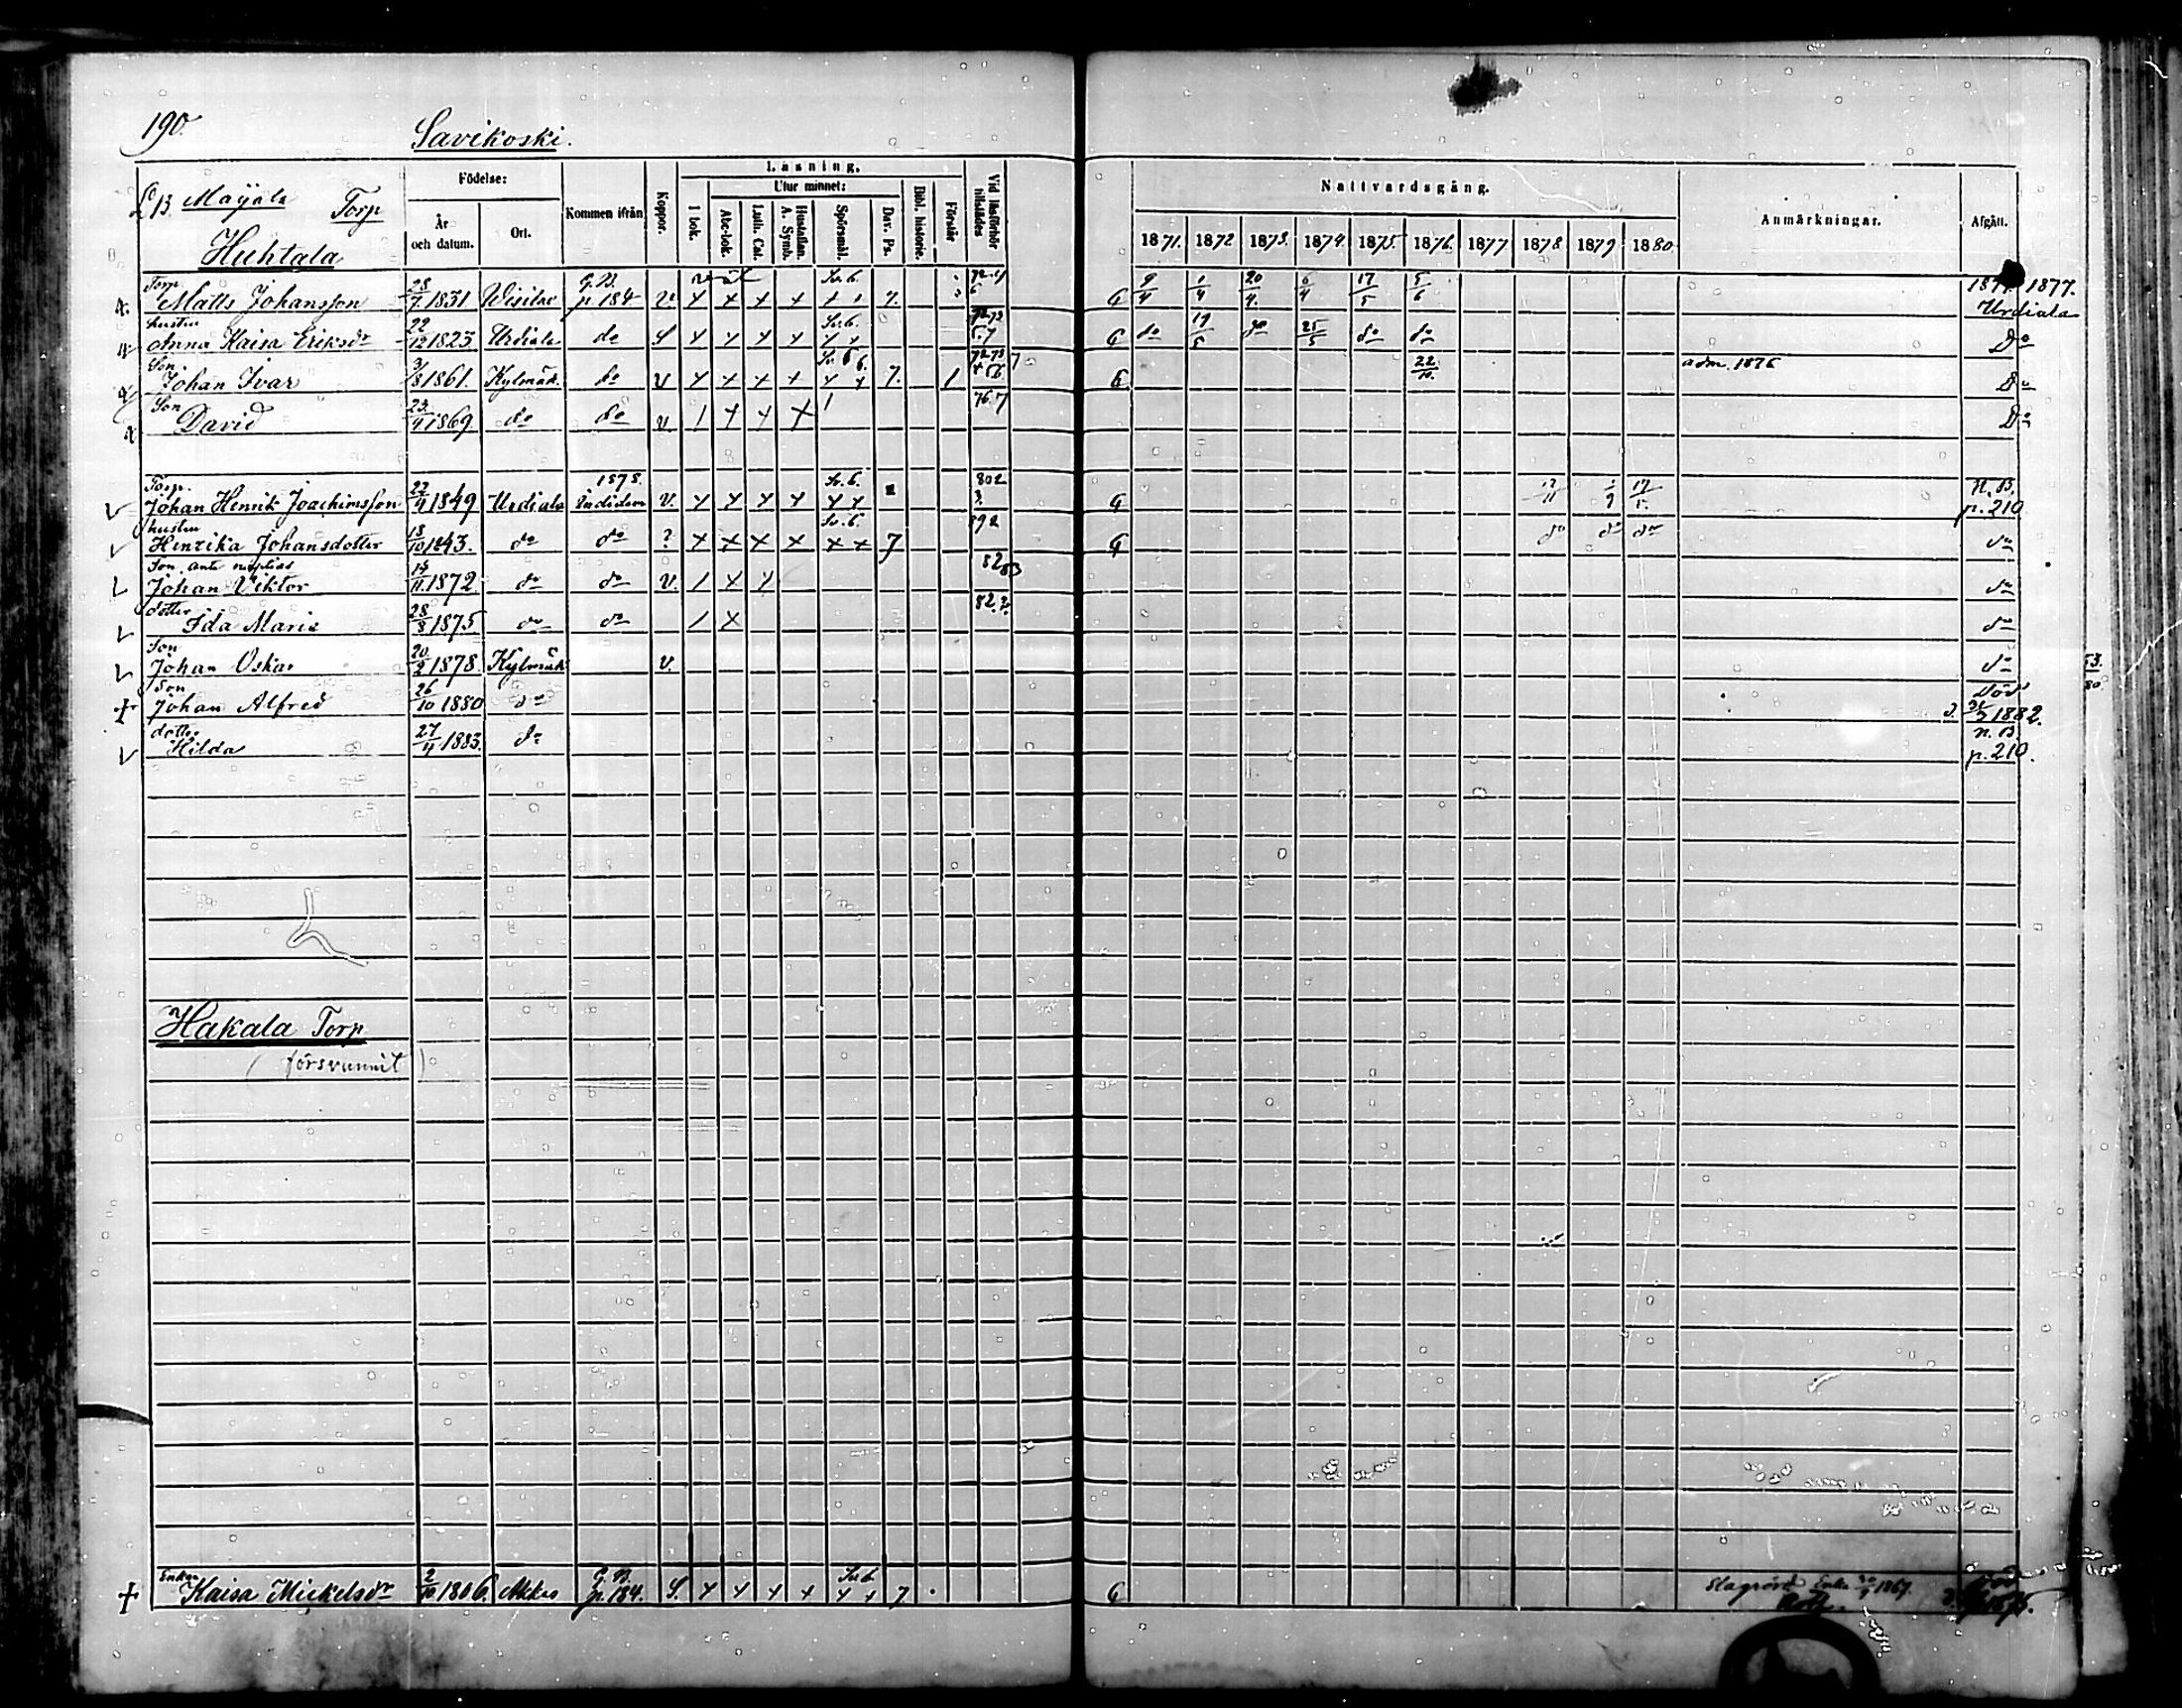 190.
Savikoski.
Läsning.
Födelse: Utur minnet: Nattvardsgång.
Majala Torp
Huhtala
År och datum. Ort. Kommen ifrån Koppor. I bok. Abc-bok. Luth. Cat. Hustaflan. A. Symb. Spörsmål. Dav. Ps. Bibl. historie. Förstår Vid läsförhör tillstädes
1871. 1872 1873. 1874. 1875. 1876. 1877 1878 1879 1880 Anmärkningar. Afgått.
Torp. G. B. Sv. 6.
Matts Johansson 28/7 1831 Wesilax p. 184 V. x x x x x x 7. G 9/4 1/4 20/4. 6/4 17/5 5/6 1877. Urdiala
hustru
Anna Kaisa Eriksdr 22/12 1823 Urdiala do S x x x x x x G do 19/5 do 25/5 do do Do
Son
Johan Ivar 3/8 1861. Kylmäk. do V x x x x x x 7. 1 G 22/10. adm. 1876 Do
Son
David 23/9 1869 do do V. 1 x x x 1 76.7 Do
Torp. 1878. Sv. 6. 802
Johan Henrik Joachimsson 22/4 1849 Urdiala Urdiala V. x x x x x x G 17/11 17/5. N. B. p. 210
hustru Sv. 6.
Henrika Johansdotter 13/10 1843. do do ? x x x x x x 7 G do do do do
Son ante nuptias
Johan Viktor 1872. do do V. 1 x x 82 83 do
dotter
Ida Maria 28/8 1875 do do 1 x do
Son
Johan Oskar 20/2 1878 Kylmäk V. do
Son
Johan Alfred 26/10 1880 do Död
d. 1882.
dotter
Hilda 27/4 1883. do N. B. p. 210.
Hakala Torp
(försvunnit)
Enkan G. B. Sv. 6
Kaisa Mickelsdr 2/10 1806. Akkas p. 184. S. x x x x x x 7 G Enka 1867.